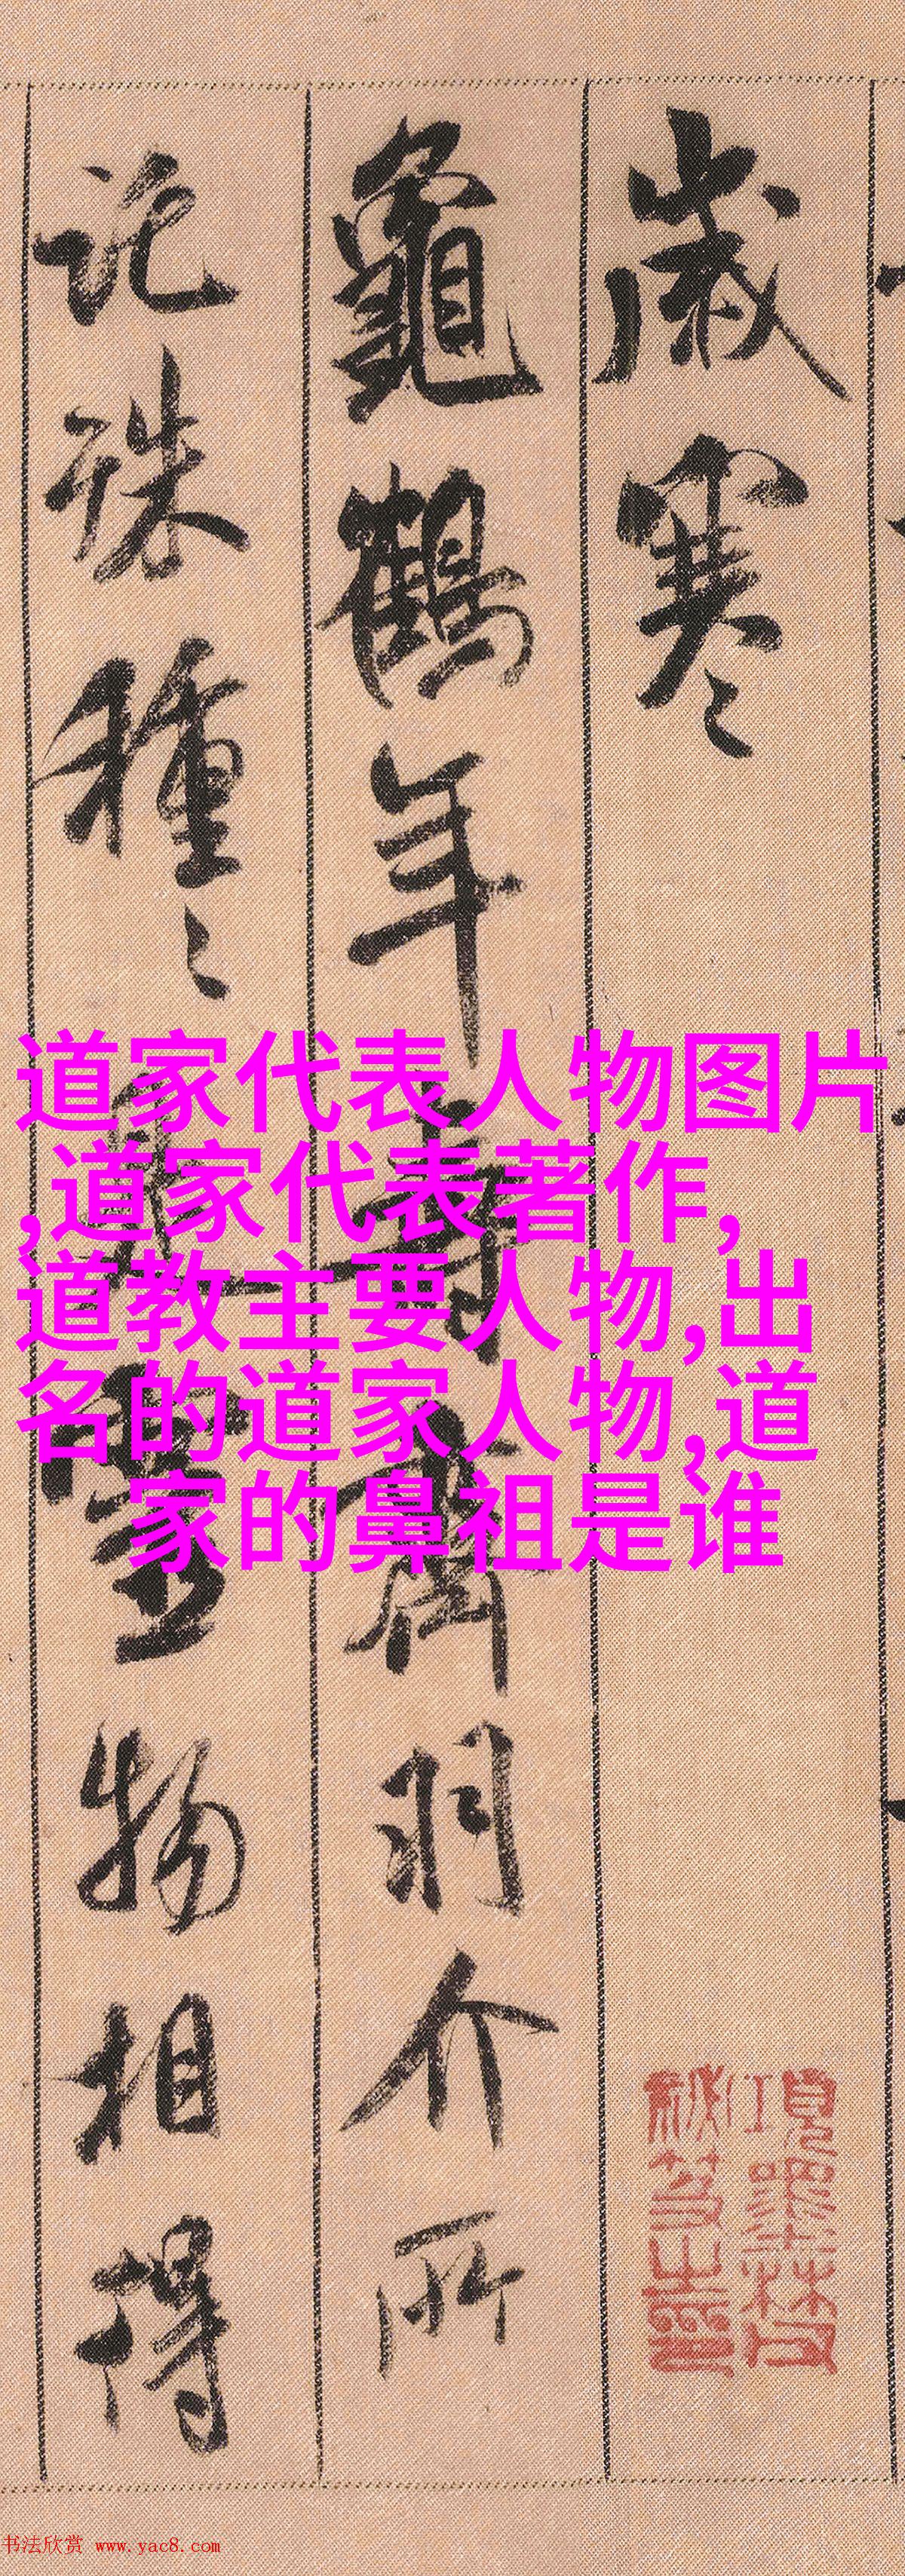 歲寒
龜鶴年壽齊羽介所
託殊種種是靈物相得
道家代表人物图片
,道家代表著作,
道教主要人物,出
名的道家人物,道
家的鼻祖是谁
項墨林父
祕笈之印
书法欣赏 www.yac8.com